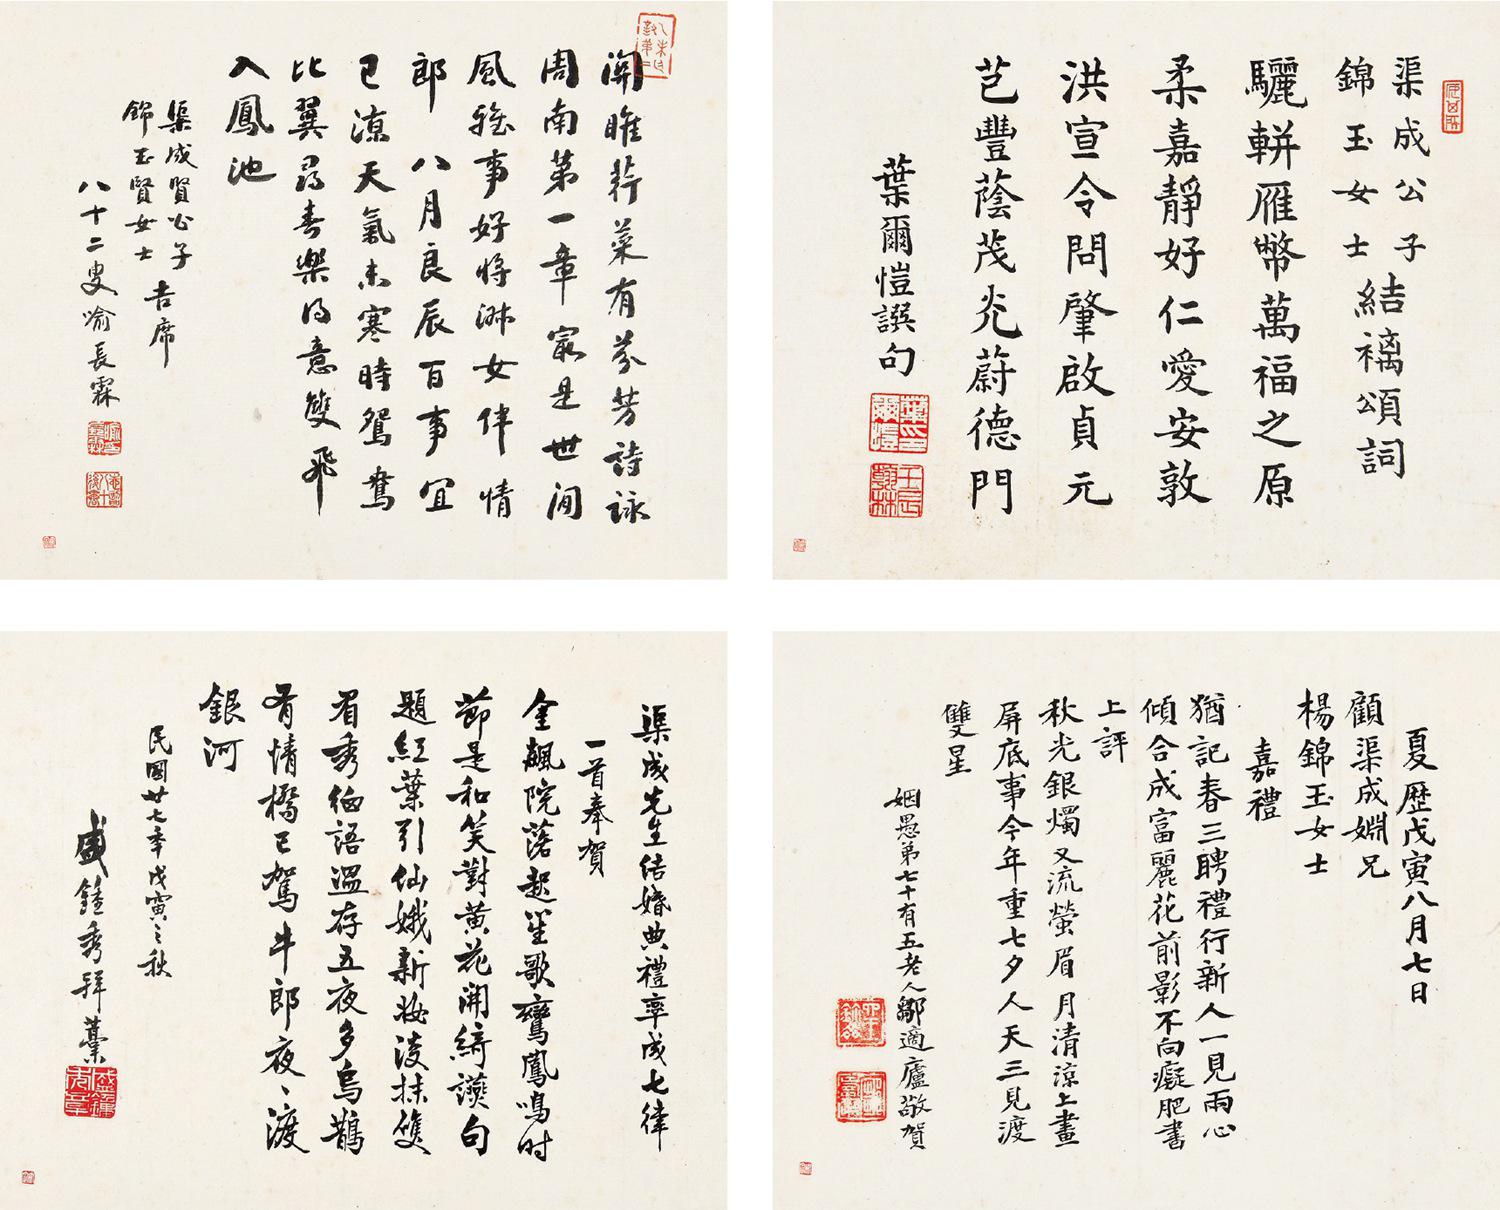 渠成公子
錦玉女士
結褵頌詞
驪軿雁幣萬福之原
柔嘉靜好仁愛安敦
洪宣令問肇啟貞元
芑豐蔭茂光蔚德門
葉爾愷譔句
葉爾愷印
壬辰翰林
關雎荇菜有芬芳詩詠
周南第一章寂是世間
風雅事好將淑女伴情
郎 八月良辰百事宜
已涼天氣未寒時鴛鴦
比翼尋春樂得意雙飛
入鳳池
渠成賢公子
錦玉賢女士
吉席
八十二叟喻長霖
夏歷戊寅八月七日
顧渠成姻兄
楊錦玉女士
嘉禮
猶記春三聘禮行新人一見兩心
傾合成富麗花前影不向癡肥書
上評
秋光銀燭又流螢眉月清涼上畫
屏底事今年重七夕人天三見渡
雙星
姻愚弟七十有五老人鄒適廬敬賀
渠成先生結婚典禮率成七律
一首奉賀
金飆院落起笙歌鸞鳳鳴時
節是和笑對黃花開綺讌句
題紅葉引仙娥新妝淡抹雙
眉秀細語溫存五夜多烏鵲
有情橋已駕牛郎夜〻渡
銀河
民國廿七年戊寅之秋
盛鍾秀拜藁